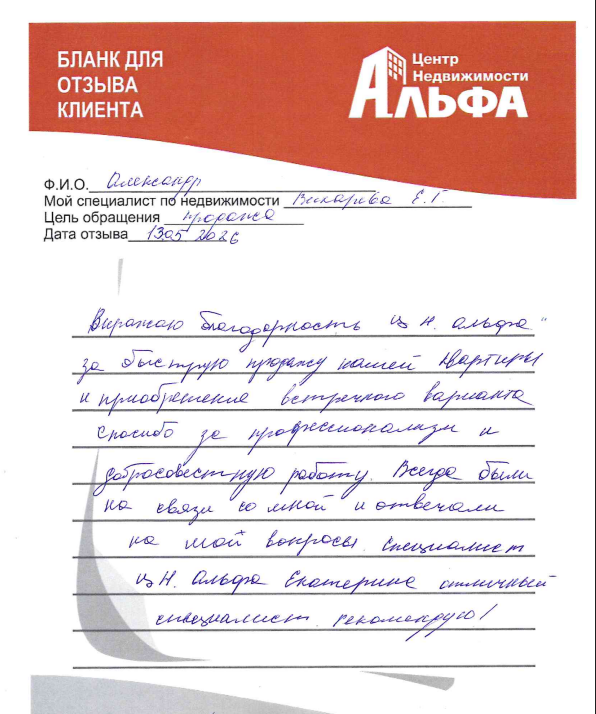 БЛАНК ДЛЯ
ОТЗЫВА
КЛИЕНТА
Центр
Недвижимости
АЛЬФА
Ф.И.О. Александр
Мой специалист по недвижимости Е.Г.
Цель обращения продажа
Дата отзыва 13.05 2026
Выражаю благодарность ц н. альфа"
за быструю продажу нашей квартиры
и приобретение встречного варианта
спасибо за профессионализм и
добросовестную работу. Всегда были
на связи со мной и отвечали
на мой вопросы. специалист
ц Н. Альфа Екатерина отличный
специалист. рекомендую!